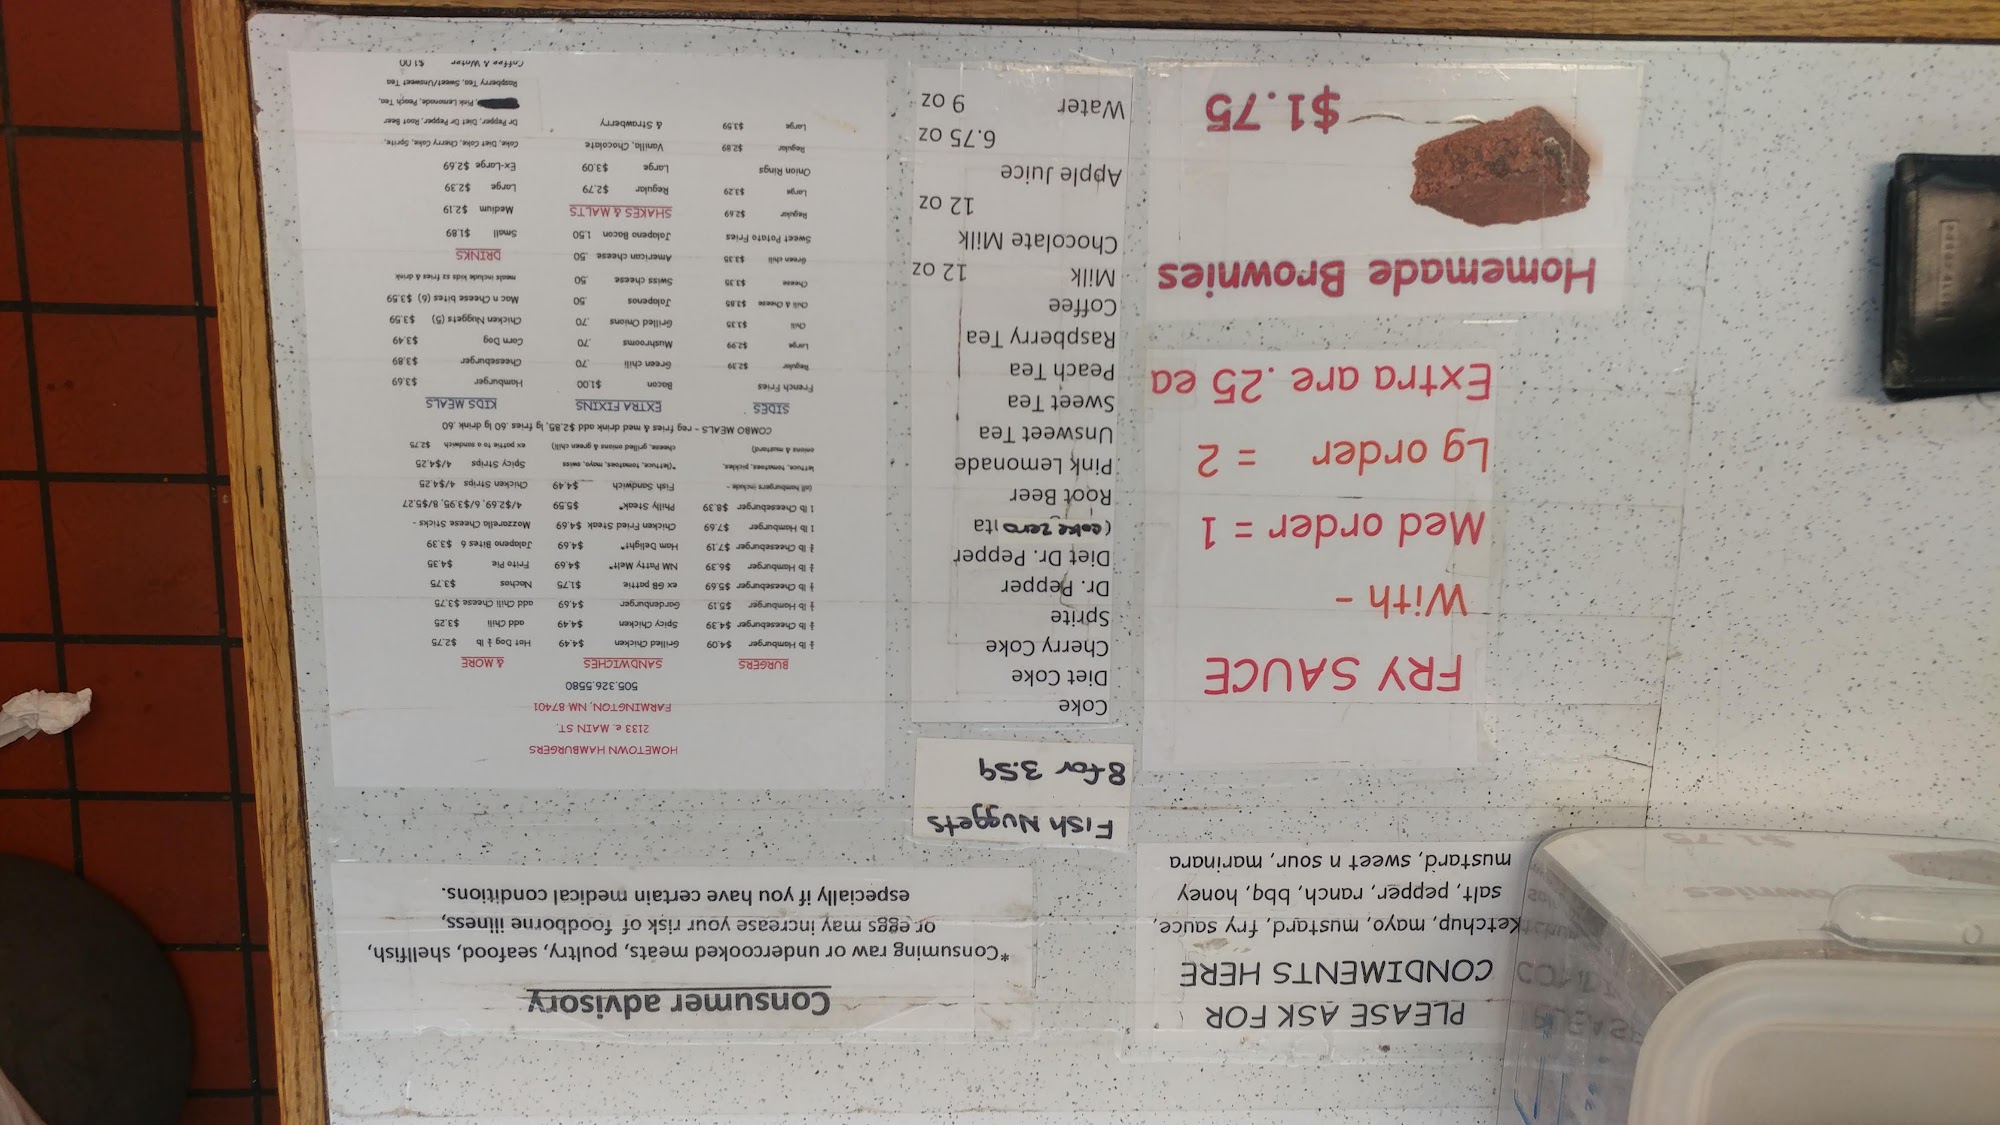 PLEASE ASK FOR
CONDIMENTS HERE
Ketchup, mayo, mustard, fry sauce,
salt, pepper, ranch, bbq, honey
mustard, sweet n sour, marinara
Consumer advisory
*Consuming raw or undercooked meats, poultry, seafood, shellfish,
or eggs may increase your risk of foodborne illness,
especially if you have certain medical conditions.
Fish Nuggets
8 for 3.59
FRY SAUCE
With -
Med order = 1
Lg order = 2
Extra are .25 ea
Homemade Brownies
$1.75
Coke
Diet Coke
Cherry Coke
Sprite
Dr. Pepper
Diet Dr. Pepper
(coke zero
Root Beer
Pink Lemonade
Unsweet Tea
Sweet Tea
Peach Tea
Raspberry Tea
Coffee
Milk 12 oz
Chocolate Milk
12 oz
Apple Juice
6.75 oz
Water 9 oz
HOMETOWN HAMBURGERS
2133 e. MAIN ST.
FARMINGTON, NM 87401
505.326.5580
BURGERS
¼ lb Hamburger $4.09
¼ lb Cheeseburger $4.39
lb Hamburger $5.19
lb Cheeseburger $5.69
lb Hamburger $6.39
lb Cheeseburger $7.19
1 lb Hamburger $7.69
1 lb Cheeseburger $8.39
(all hamburgers include -
lettuce, tomatoes, pickles,
onions & mustard)
SANDWICHES
Grilled Chicken $4.49
Spicy Chicken $4.49
Gardenburger $4.69
ex GB pattie $1.75
NM Patty Melt* $4.69
Ham Delight* $4.69
Chicken Fried Steak $4.69
Philly Steak* $5.59
Fish Sandwich $4.49
*(lettuce, tomatoes, mayo, swiss
cheese, grilled onions & green chili)
& MORE
Hot Dog ¼ lb $2.75
add Chili $3.25
add Chili Cheese $3.75
Nachos $3.75
Frito Pie $4.35
Jalapeno Bites 6 $3.39
Mozzarella Cheese Sticks -
4/$2.69, 6/$3.95, 8/$5.27
Chicken Strips 4/$4.25
Spicy Strips 4/$4.25
ex pattie to a sandwich $2.75
COMBO MEALS - reg fries & med drink add $2.85, lg fries .60 lg drink .60
SIDES
French Fries
Regular $2.39
Large $2.99
Chili $3.35
Chili & Cheese $3.85
Cheese $3.35
Green chili $3.35
Sweet Potato Fries
Regular $2.69
Large $3.29
Onion Rings
Regular $2.89
Large $3.59
EXTRA FIXINS
Bacon $1.00
Green chili .70
Mushrooms .70
Grilled Onions .70
Jalapenos .50
Swiss cheese .50
American cheese .50
Jalapeno Bacon 1.50
SHAKES & MALTS
Regular $2.79
Large $3.09
Vanilla, Chocolate
& Strawberry
KIDS MEALS
Hamburger $3.69
Cheeseburger $3.89
Corn Dog $3.49
Chicken Nuggets (5) $3.59
Mac n Cheese bites (6) $3.59
meals include kids sz fries & drink
DRINKS
Small $1.89
Medium $2.19
Large $2.39
Ex-Large $2.69
Coke, Diet Coke, Cherry Coke, Sprite,
Dr Pepper, Diet Dr Pepper, Root Beer
Pink Lemonade, Peach Tea,
Raspberry Tea, Sweet/Unsweet Tea
Coffee & Water $1.00